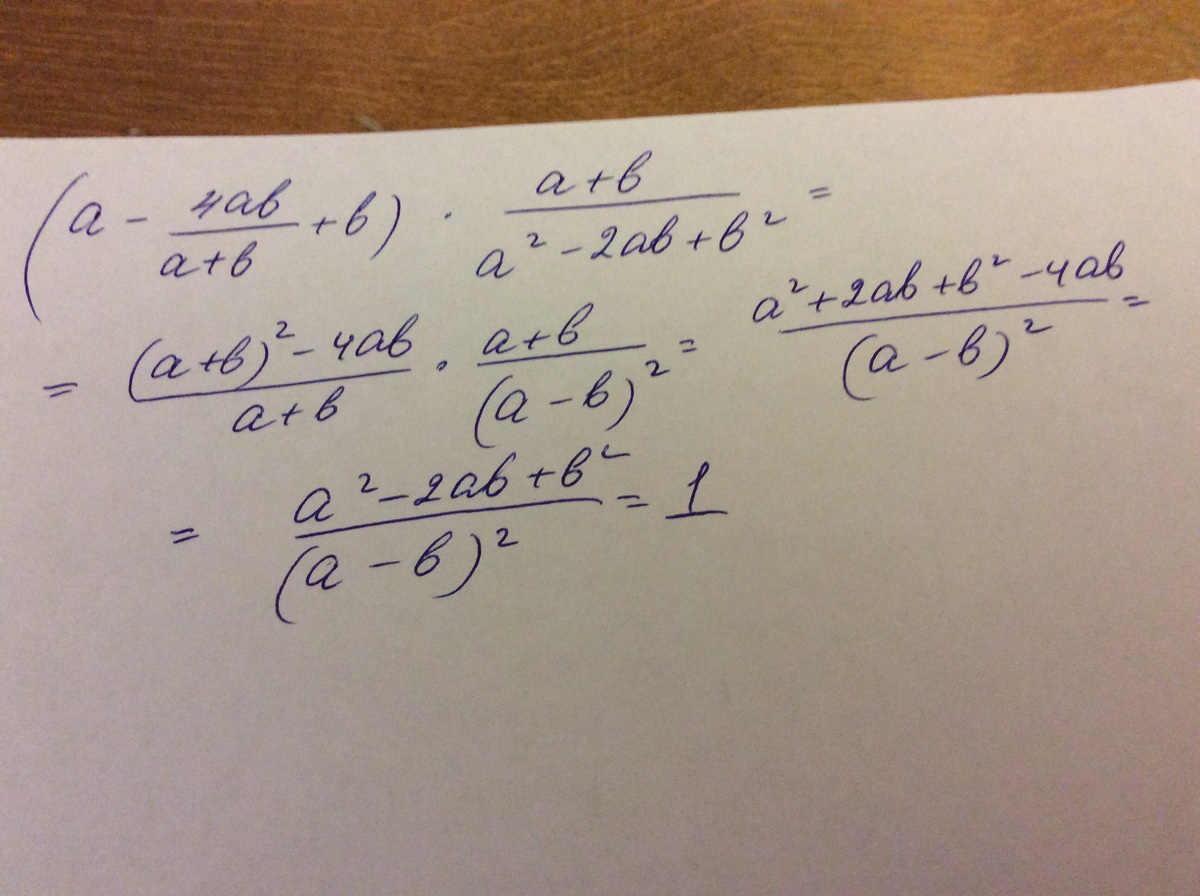 (a - 4ab/(a+b) + b) · (a+b)/(a² - 2ab + b²) =
= ((a+b)² - 4ab)/(a+b) · (a+b)/(a - b)² = (a² + 2ab + b² - 4ab)/(a - b)² =
= (a² - 2ab + b²)/(a - b)² = 1